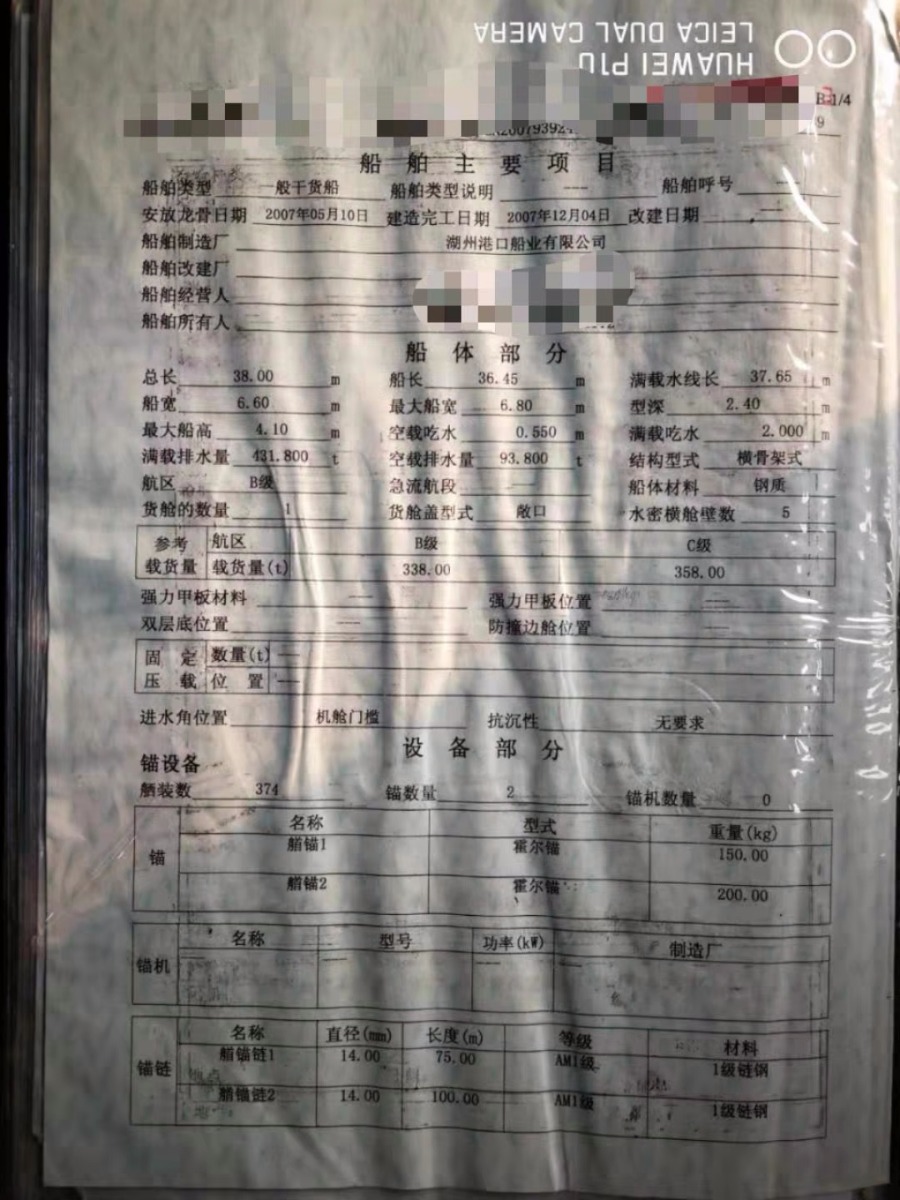 HUAWEI P10
LEICA DUAL CAMERA
B 1/4
9
船舶主要项目
船舶类型 一般干货船 船舶类型说明 —— 船舶呼号 ——
安放龙骨日期 2007年05月10日 建造完工日期 2007年12月04日 改建日期 ——
船舶制造厂 湖州港口船业有限公司
船舶改建厂
船舶经营人
船舶所有人
船体部分
总长 38.00 m 船长 36.45 m 满载水线长 37.65 m
船宽 6.60 m 最大船宽 6.80 m 型深 2.40 m
最大船高 4.10 m 空载吃水 0.550 m 满载吃水 2.000 m
满载排水量 431.800 t 空载排水量 93.800 t 结构型式 横骨架式
航区 B级 急流航段 —— 船体材料 钢质
货舱的数量 1 货舱盖型式 敞口 水密横舱壁数 5
参考 航区 B级 C级
载货量 载货量(t) 338.00 358.00
强力甲板材料 —— 强力甲板位置 ——
双层底位置 —— 防撞边舱位置 ——
固定 数量(t) ——
压载 位置 ——
进水角位置 机舱门槛 抗沉性 无要求
设备部分
锚设备
舾装数 374 锚数量 2 锚机数量 0
锚 名称 型式 重量(kg)
艏锚1 霍尔锚 150.00
艏锚2 霍尔锚 200.00
锚机 名称 型号 功率(kW) 制造厂
—— —— —— ——
锚链 名称 直径(mm) 长度(m) 等级 材料
艏锚链1 14.00 75.00 AM1级 1级链钢
艏锚链2 14.00 100.00 AM1级 1级链钢